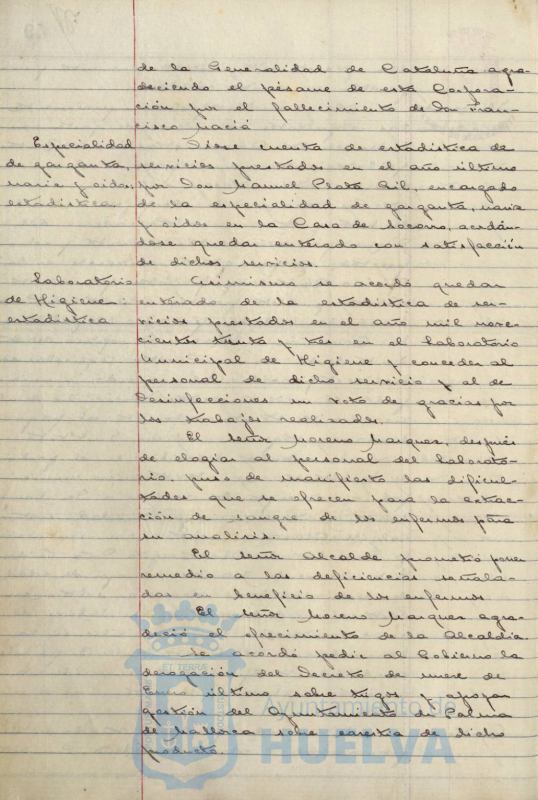 de la Generalidad de Cataluña agra-
deciendo el pésame de esta Corpora-
ción por el fallecimiento de Don Fran-
cisco Maciá
Especialidad
de garganta,
nariz y oidos,
estadistica.
Diose cuenta de estadistica de
servicios prestados en el año último
por Don Manuel Plata Gil, encargado
de la especialidad de garganta, nariz
y oidos en la Casa de Socorro, acordán-
dose quedar enterado con satisfacción
de dichos servicios.
Laboratorio
de Higiene:
estadistica
Asimismo se acordó quedar
enterado de la estadistica de ser-
vicios prestados en el año mil nove-
cientos treinta y tres en el Laboratorio
Municipal de Higiene y conceder al
personal de dicho servicio y al de
Desinfecciones un voto de gracias por
los trabajos realizados.
El señor Moreno Marquez, después
de elogiar al personal del Laborato-
rio, puso de manifiesto las dificul-
tades que se ofrecen para la extrac-
ción de sangre de los enfermos para
su analisis.
El señor Alcalde prometió poner
remedio a las deficiencias señala-
das en beneficio de los enfermos
El señor Moreno Marquez agra-
deció el ofrecimiento de la Alcaldia.
Se acordó pedir al Gobierno la
derogación del Decreto de nueve de
Enero último sobre trigos y apoyar
gestión del Ayuntamiento de Palma
de Mallorca sobre carestia de dicho
producto.
Ayuntamiento de
HUELVA